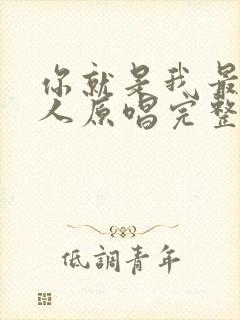 你就是我最
人原唱完整
低調青年